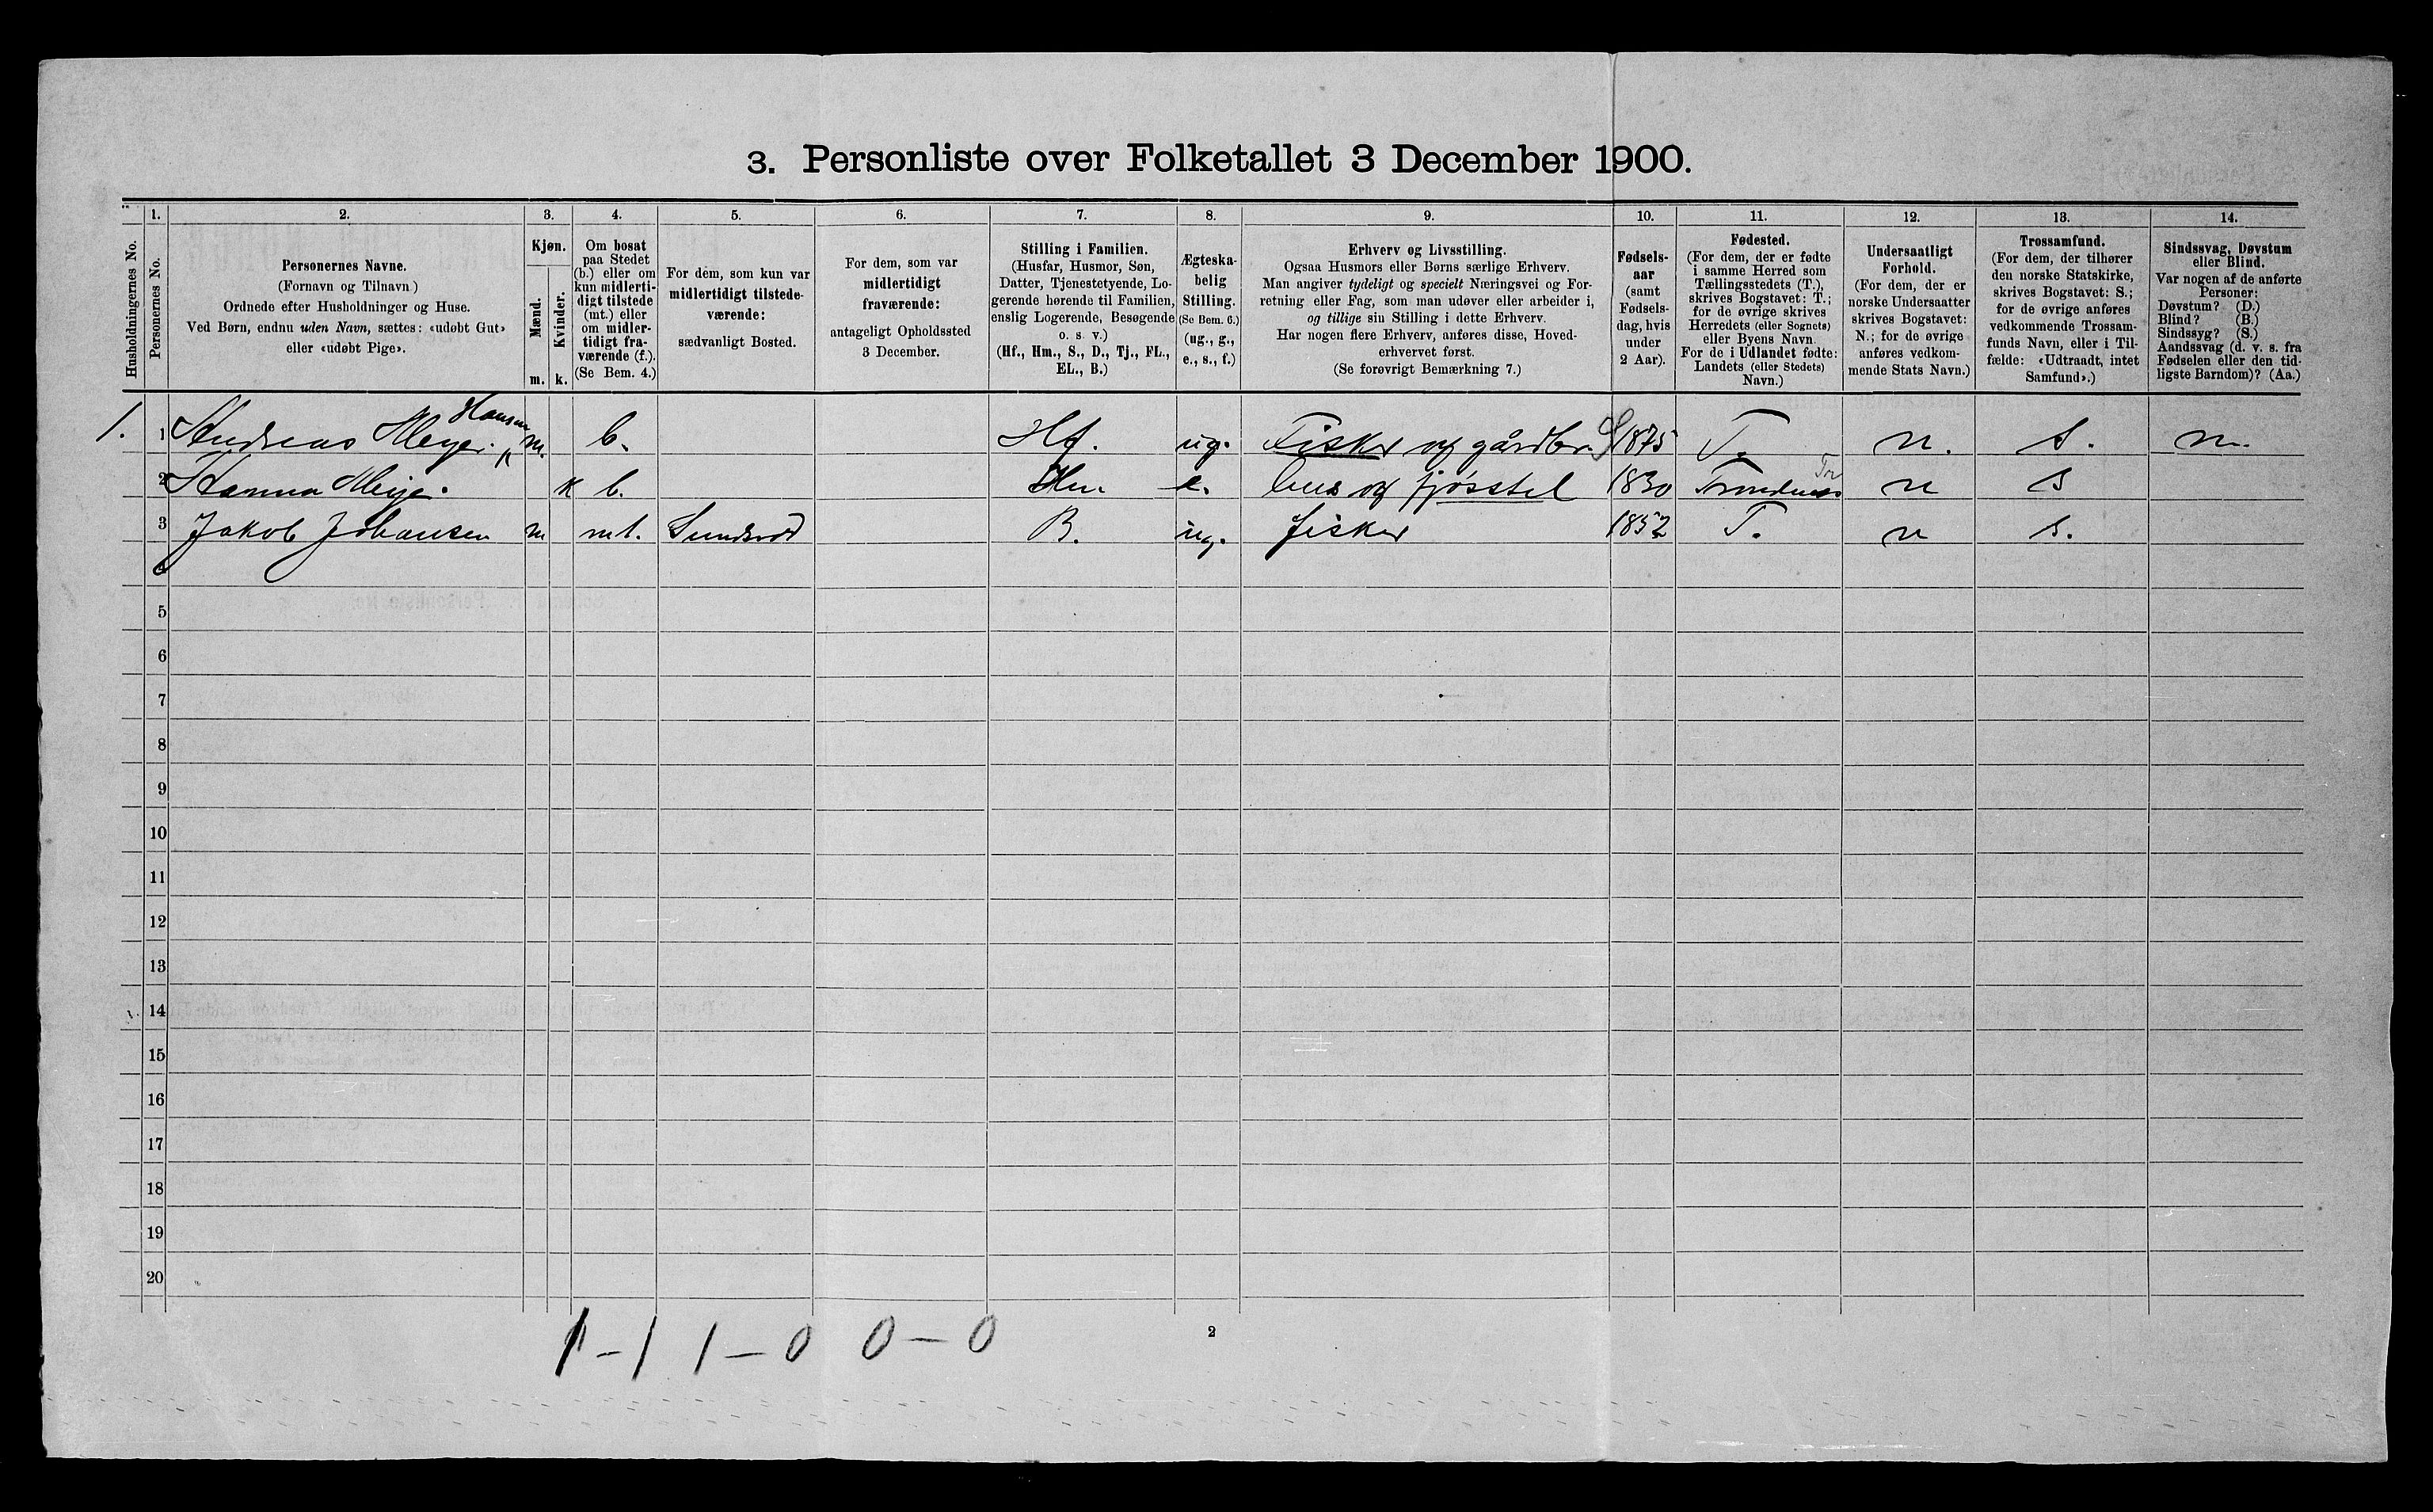 3. Personliste over Folketallet 3 December 1900.
1. 2. 3. 4. 5. 6. 7. 8. 9. 10. 11. 12. 13. 14.
Husholdningernes No.
Personernes No.
Personernes Navne.
(Fornavn og Tilnavn)
Ordnede efter Husholdninger og Huse.
Ved Børn, endnu uden Navn, sættes: «udøbt Gut»
eller «udøbt Pige».
Kjøn.
Mænd.
Kvinder.
m. k.
Om bosat
paa Stedet
(b.) eller om
kun midlerti-
digt tilstede
(mt.) eller
om midler-
tidigt fra-
værende (f.).
(Se Bem. 4.)
For dem, som kun var
midlertidigt tilstede-
værende:
sædvanligt Bosted.
For dem, som var
midlertidigt
fraværende:
antageligt Opholdssted
3 December.
Stilling i Familien.
(Husfar, Husmor, Søn,
Datter, Tjenestetyende, Lo-
gerende hørende til Familien,
enslig Logerende, Besøgende
o. s. v.)
(Hf., Hm., S., D., Tj., FL.,
EL., B.)
Ægteska-
belig
Stilling.
(Se Bem. 6.)
(ug., g.,
e., s., f.)
Erhverv og Livsstilling.
Ogsaa Husmors eller Børns særlige Erhverv.
Man angiver tydeligt og specielt Næringsvei og For-
retning eller Fag, som man udøver eller arbeider i,
og tillige sin Stilling i dette Erhverv.
Har nogen flere Erhverv, anføres disse, Hoved-
erhvervet først.
(Se forøvrigt Bemærkning 7.)
Fødsels-
aar
(samt
Fødsels-
dag, hvis
under
2 Aar).
Fødested.
(For dem, der er fødte
i samme Herred som
Tællingsstedets (T.),
skrives Bogstavet: T.;
for de øvrige skrives
Herredets (eller Sognets)
eller Byens Navn.
For de i Udlandet fødte:
Landets (eller Stedets)
Navn.)
Undersaatligt
Forhold.
(For dem, der er
norske Undersaatter
skrives Bogstavet:
N.; for de øvrige
anføres vedkom-
mende Stats Navn.)
Trossamfund.
(For dem, der tilhører
den norske Statskirke,
skrives Bogstavet: S.;
for de øvrige anføres
vedkommende Trossam-
funds Navn, eller i Til-
fælde: «Udtraadt, intet
Samfund».)
Sindssvag, Døvstum
eller Blind.
Var nogen af de anførte
Personer:
Døvstum? (D.)
Blind? (B.)
Sindssyg? (S.)
Aandssvag (d. v. s. fra
Fødselen eller den tid-
ligste Barndom)? (Aa.)
Hansen
1. 1 Andreas Meyer. m. b. Hf. ug. Fisker og gårdbr. S 1875 T. n. S. n.
2 Hanna Meyer. k b. Hm. e. hus og fjøsstel 1830 Trondenes n S
3 Jakob Johansen m mt. B. ug. fisker 1852 T. n S.
4
5
6
7
8
9
10
11
12
13
14
15
16
17
18
19
20
1-1 1-0 0-0
2